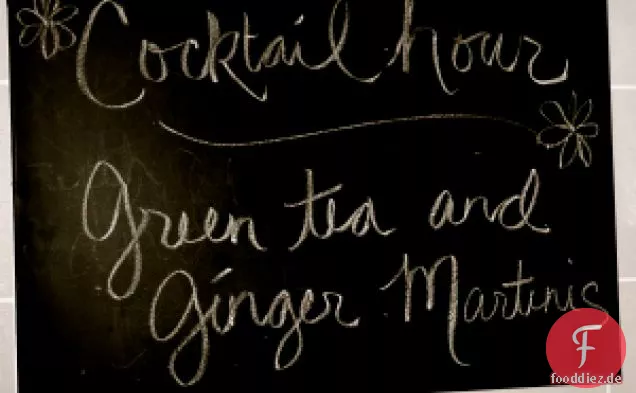 Cocktail hour
Green tea and
Ginger Martinis
F
fooddiez.de